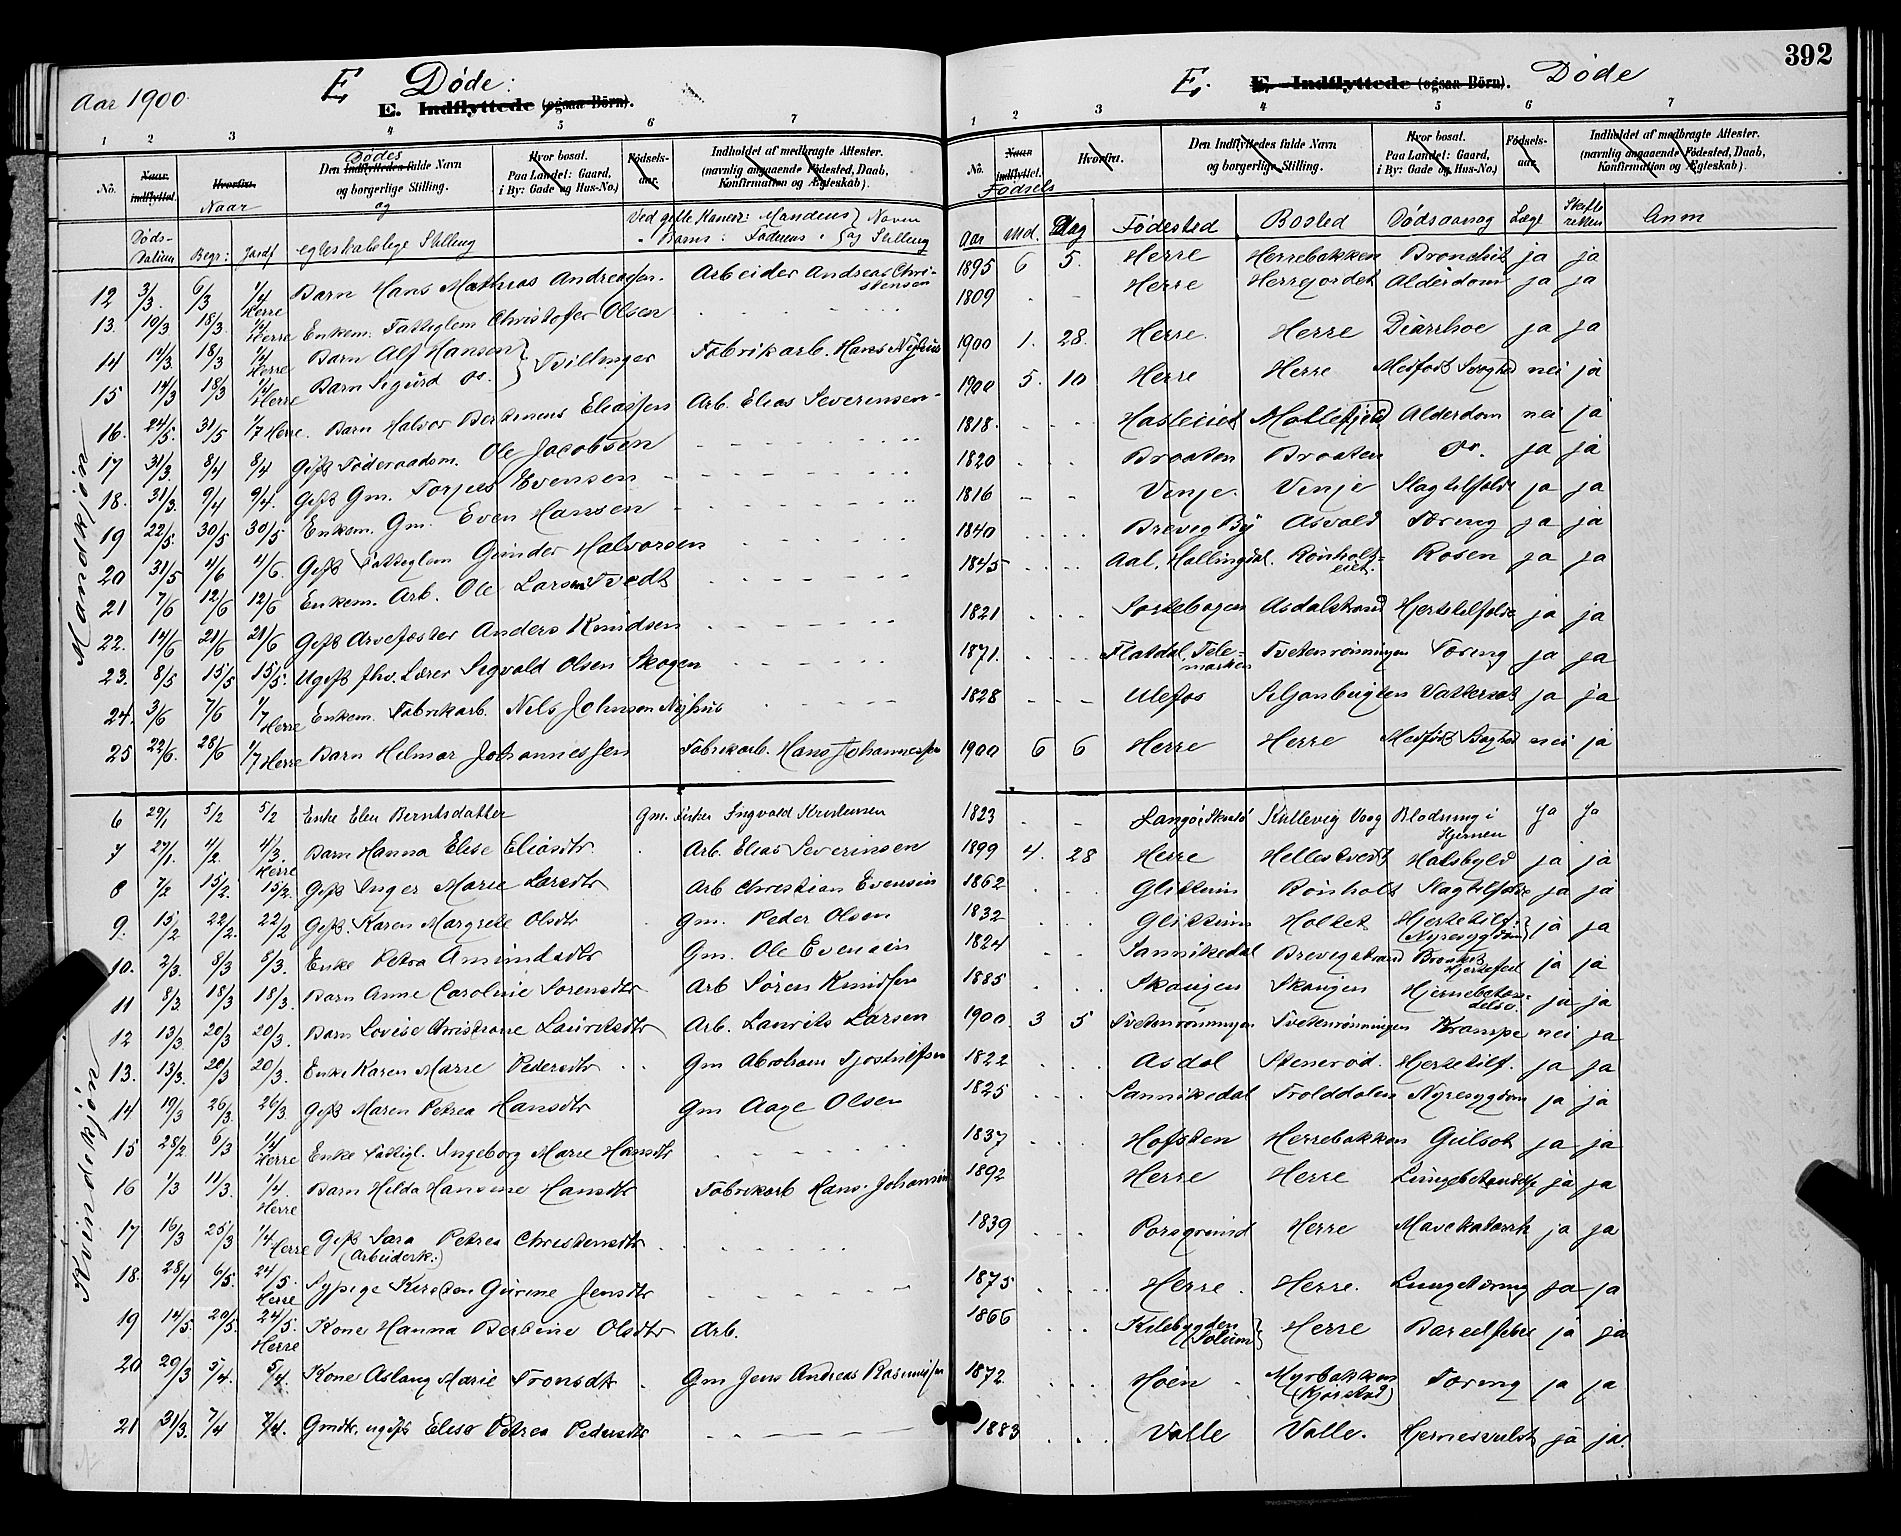 392
Aar 1900.
E Døde:
E. Indflyttede (ogsaa Börn).
1 2 3 4 5 6 7
No.
Naar indflyttet.
Hvorfra.
Naar
Dødes
Den Indflyttedes fulde Navn
og borgerlige Stilling.
og
Hvor bosat.
Paa Landet: Gaard,
i By: Gade og Hus-No.)
Födsels-
aar.
Indholdet af medbragte Attester.
(navnlig angaaende Födested, Daab,
Konfirmation og Ægteskab).
Døds-
datum
Begr:
Jordf
egteskabelige Stilling
Ved gifte Koner: Mandens } Navn
" Børns: Faderens " } og Stilling
Mandkjøn.
12 3/3. 6/3 1/4 Herre Barn Hans Mathias Andreassen. Arbeider Andreas Christensen
13. 10/3 18/3. 1/4 Herre Enkem. Fattiglem Christofer Olsen
14 14/3. 18/3 1/4 Herre Barn Alf Hansen } Tvillinger Fabrikarb. Hans Nyhus
15 14/3 18/3 1/4 Herre Barn Sigurd do.
16. 24/5. 31/5 1/7 Herre. Barn Halvor Berthinius Eliassen Arb. Elias Severinsen
17 31/3 8/4 8/4 Gift Føderaadsm. Ole Jacobsen
18. 31/3. 9/4 9/4. Gift Gm. Torjus Evensen
19 22/5. 30/5 30/5 Enkem. Gm. Even Hansen
20 31/5 4/6 4/6. Gift Fattiglem Gunder Halvorsen
21 7/6 12/6 12/6 Enkem. Arb. Ole Larsen Tvedt
22. 14/6 21/6 21/6 Gift Arvefæster Anders Knudsen
23. 8/5 15/5 15/5. Ugift fhv. Lærer Sigvald Olsen Skogen
24. 3/6 7/6 1/7 Herre Enkem. Fabrikarb. Nils Johnsen Nyhus
25 22/6. 28/6 1/7 Herre Barn Hilmar Johannessen Fabrikarb. Hans Johannessen
Kvindekjøn.
6 29/1 5/2 5/2 Enke Elen Berntsdatter Gm. Fisker Ingvald Kristensen
7 27/1. 4/2. 4/3. Herre Barn Hanna Elise Eliasdtr. Arb. Elias Severinsen
8 7/2 15/2. 15/2. Gift Inger Marie Larsdtr Arb Christian Evensen
9. 15/2 22/2. 22/2 Gift Karen Margrete Olsdtr Gm. Peder Olsen
10. 2/3. 8/3 5/3. Enke Petra Amundsdtr Gm. Ole Evensen
11 8/3. 18/3 18/3. Barn Anne Caroline Sørensdtr Arb Søren Knudsen
12 13/3 20/3 20/3. Barn Lovise Christiane Lauritsdtr Arb. Laurits Larsen
13. 13/3. 20/3 20/3. Enke Karen Marie Pedersdtr Gm Abraham Tjostulfsen
14 19/3 26/3. 26/3. Gift Maren Petrea Hansdtr Gm Aage Olsen
15 28/2 6/3 1/4 Herre Enke Fattigl. Ingeborg Marie Hansdtr
16 1/3 11/3. 1/4. Herre Barn Hilda Hansine Hansdtr Fabrikarb Hans Johansen
17 16/3 25/3 1/4 Herre Gift Sara Petrea Christensdtr (Arbeiderk.)
18. 28/4 6/5. 24/5. Herre Sypige Kirsten Gurine Jensdtr
19 14/5. 20/5. 24/5. Herre Kone Hanna Berthine Olsdtr Arb.
20 29/3 5/4. 5/4. Kone Aslaug Marie Tronsdtr Gm Jens Andreas Rasmussen
21 31/3. 7/4 7/4. Gmdtr, ugift Elise Petrea Pedersdtr
E. E. Indflyttede (ogsaa Börn). Døde
1 2 3 4 5 6 7
No.
Naar indflyttet.
Fødsels
Hvorfra.
Den Indflyttedes fulde Navn
og borgerlige Stilling.
Hvor bosat.
Paa Landet: Gaard,
i By: Gade og Hus-No.)
Födsels-
aar.
Indholdet af medbragte Attester.
(navnlig angaaende Födested, Daab,
Konfirmation og Ægteskab).
Aar Md. Dag Fødested Bosted Dødsaarsag Læge Skifteretten Anm
1895 6 5. Herre Herrebakken Bronchit ja ja
1809 Herre Herrejordet Alderdom ja ja
1900 1. 28. Herre. Herre Diarrhoe ja ja
1900 5. 10 Herre Herre Medfødt Svaghed nei ja
1818. Hasleiet Møllefjeld Alderdom nei ja
1820 Braaten Braaten do. ja ja
1816 Venje. Venje Slagtilfælde ja ja
1840 Brevig By Asvald Tæring ja ja
1845 Aal, Hallingdal. Rønholteiet. Rosen ja ja
1821 Asdalstrand Hjertetilfælde ja ja
1871. Flatdal, Telemarken Tvetenrønningen Tæring ja ja
1828 Ulefos Vattersot ja ja
1900 6 6 Herre Herre Medfødt Svaghed nei ja
1823 Langø, Skaatø Kullevig Vaag Blodning i Hjernen ja ja
1899 4. 28 Herre Hellestvedt Halsbyld ja ja
1862 Glittum Rønholt Slagtilfælde ja ja
1832 Glittum Holtet Hjertetilf. (Nyresygdom) } ja ja
1824 Sannikedal Brevigstrand Bronkit Hjertefeil ja ja
1885 Skaugen Skaugen Hjernebetændelse. ja ja
1900. 3 5 Tvetenrønningen Tvetenrønningen Krampe nei ja
1822 Asdal Stenerød. Hjertetilf. ja ja
1825 Sannikedal Trolddalen Nyresygdom ja ja
1837 Hofsten Herrebakken Gulsot ja ja
1892 Herre Herre Lungebetændelse ja ja
1839 Porsgrund Herre Mavekatarrh ja ja
1875 Herre. Herre. Lungetæring ja ja
1866 Kilebygden (Solum) } Herre Barselfeber ja ja
1872 Høen Myrbakken (Kjørstad) Tæring ja ja
1883 Valle Valle. Hjernesvulst ja ja.